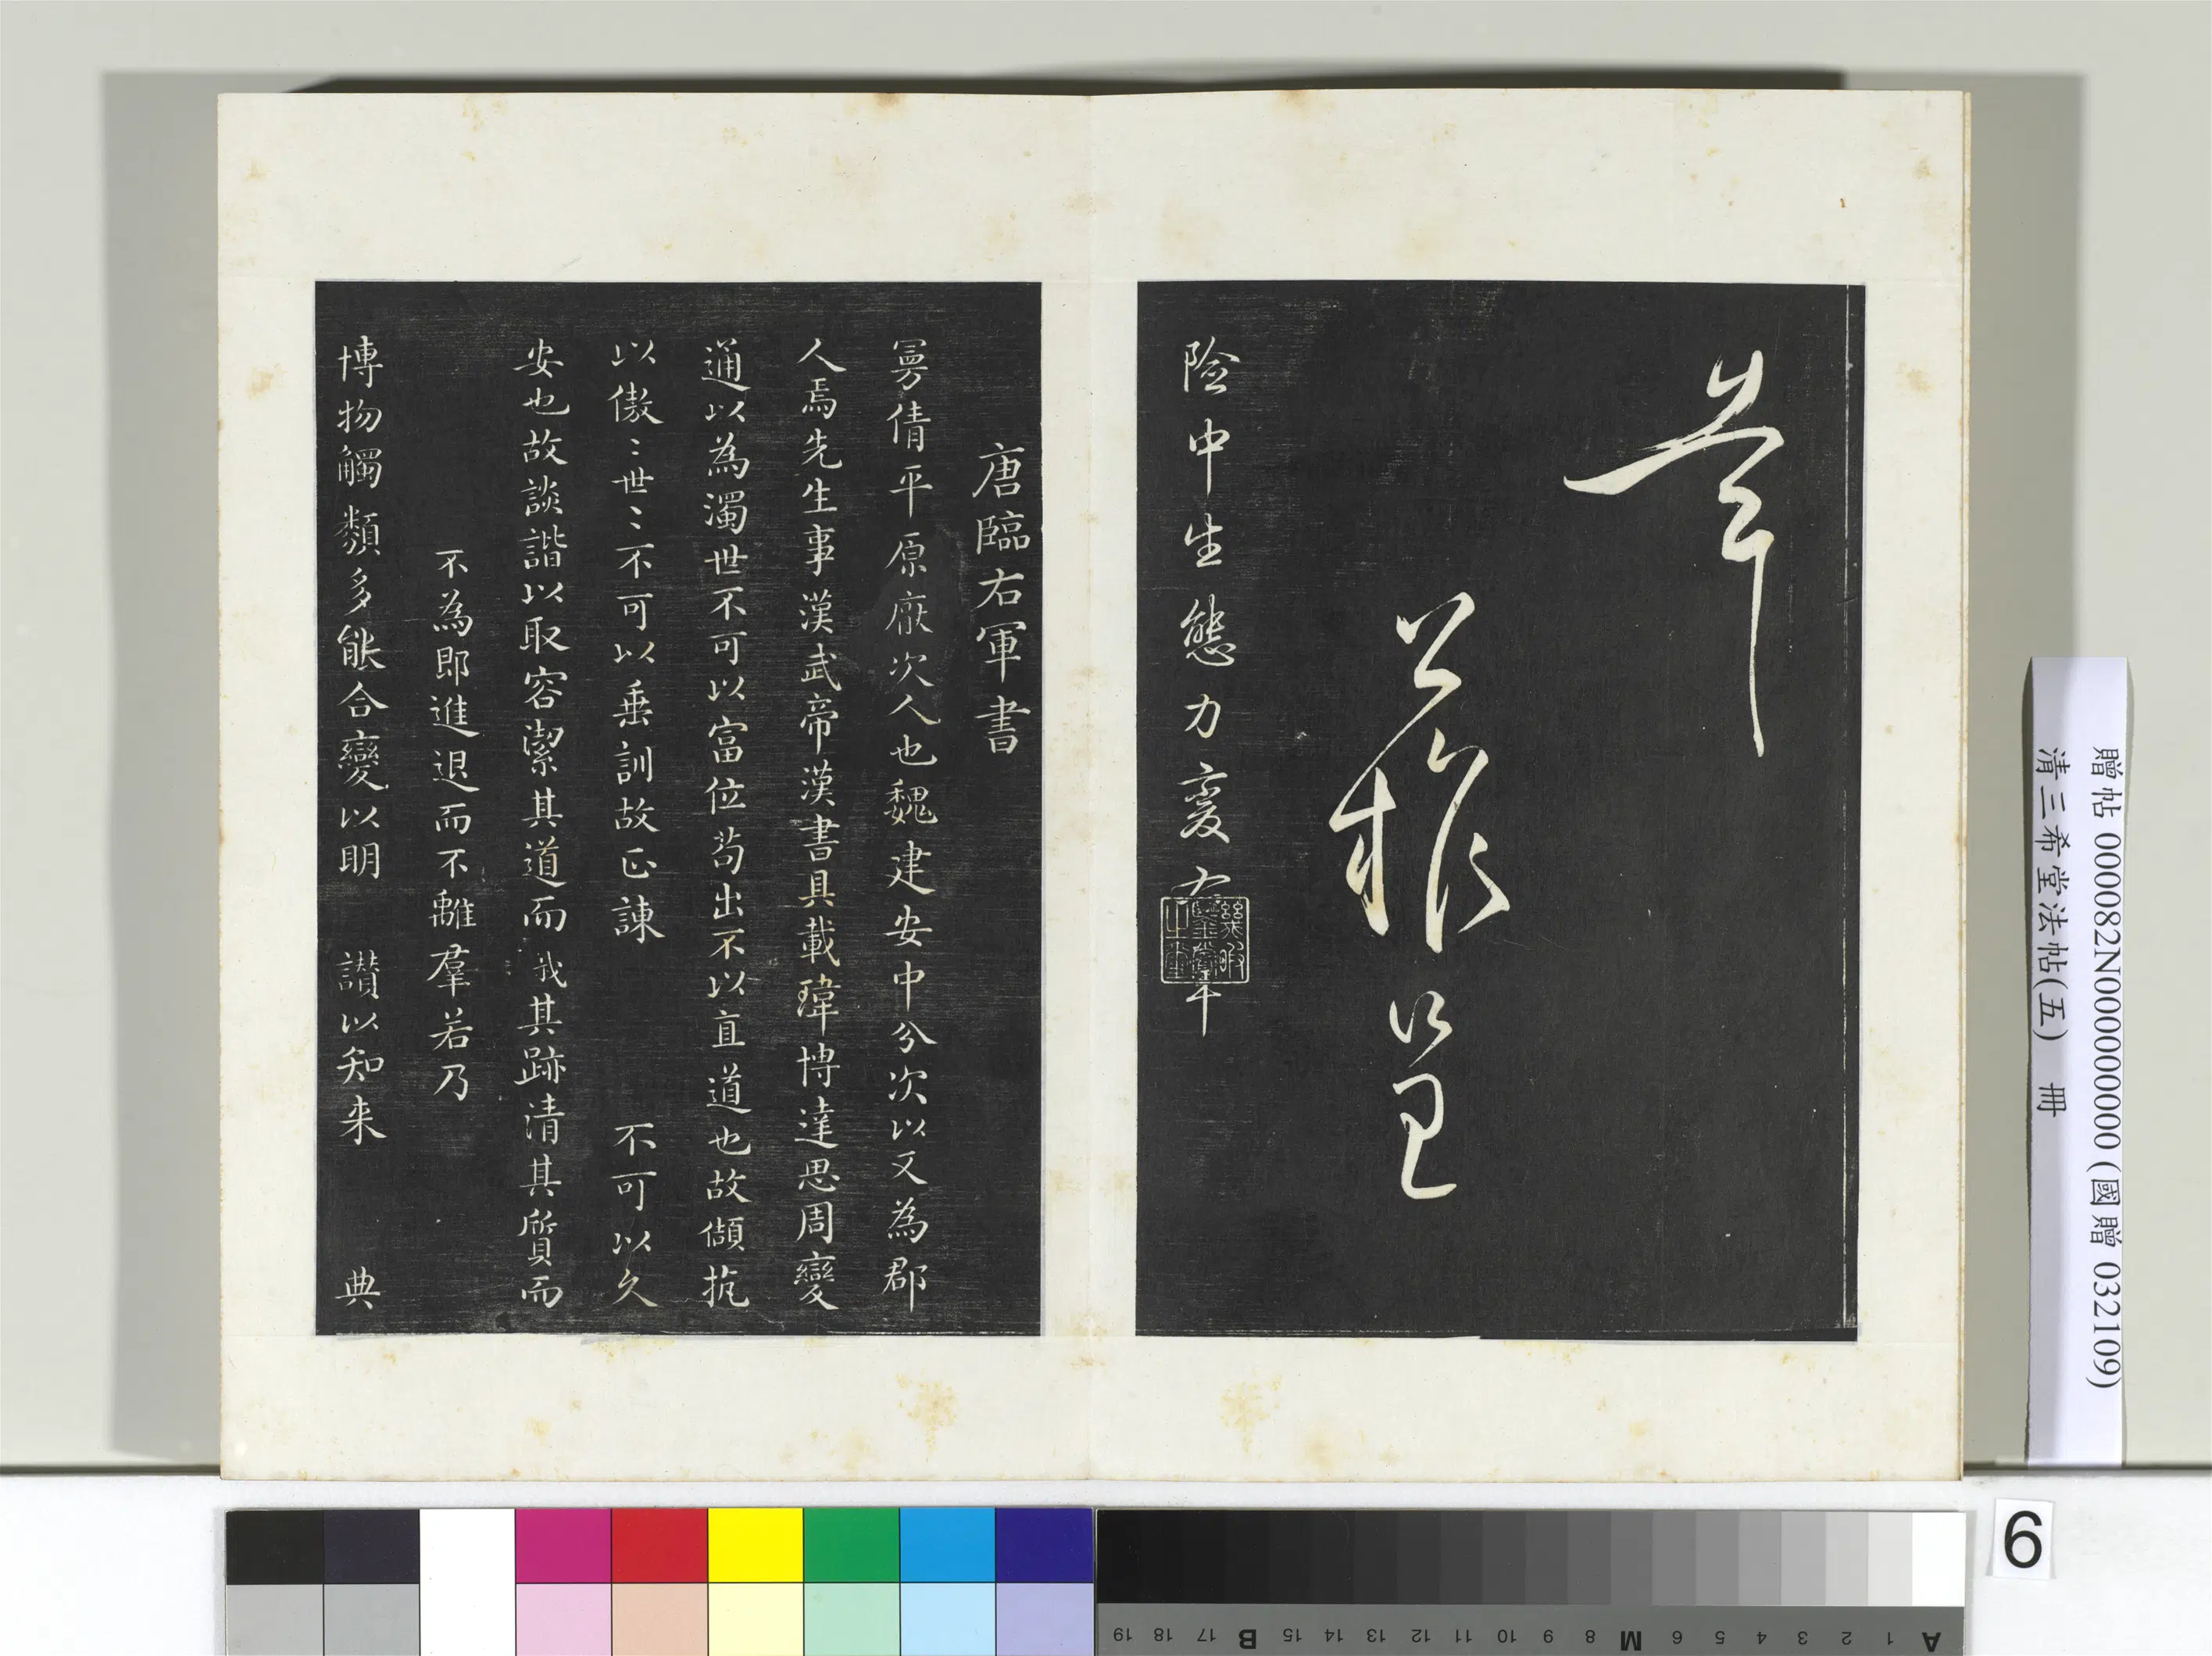 幸
公權呈
險中生態力變右軍
幾暇鑒賞之璽
唐臨右軍書
曼倩平原厭次人也魏建安中分次以又為郡
人焉先生事漢武帝漢書具載瑋博達思周變
通以為濁世不可以富位苟出不以直道也故傾抗
以傲〻世〻不可以垂訓故正諫 不可以久
安也故談諧以取容潔其道而 其跡清其質而
不為即進退而不離羣若乃
博物觸類多能合變以明 讃以知来 典
贈帖 000082N000000000 (國贈 032109)
清三希堂法帖(五) 冊
6
A 1 2 3 4 5 6 M 8 9 10 11 12 13 14 15 B 17 18 19